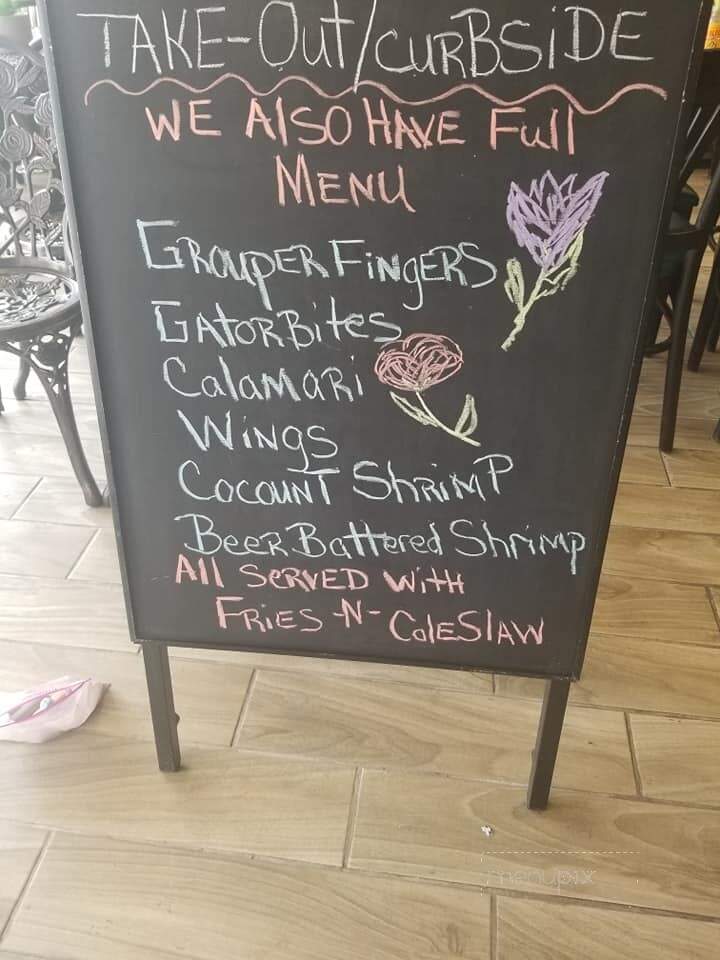 TAKE-Out/CURBSiDE
WE AlSO HAVE Full
MENU
GROUPER FiNgERS
GATORBites
CalaMaRi
WiNgs
COCOUNT ShRiMP
BeeR Battered Shrimp
All SERVED WitH
FRiES -N- ColESlAW
menupix